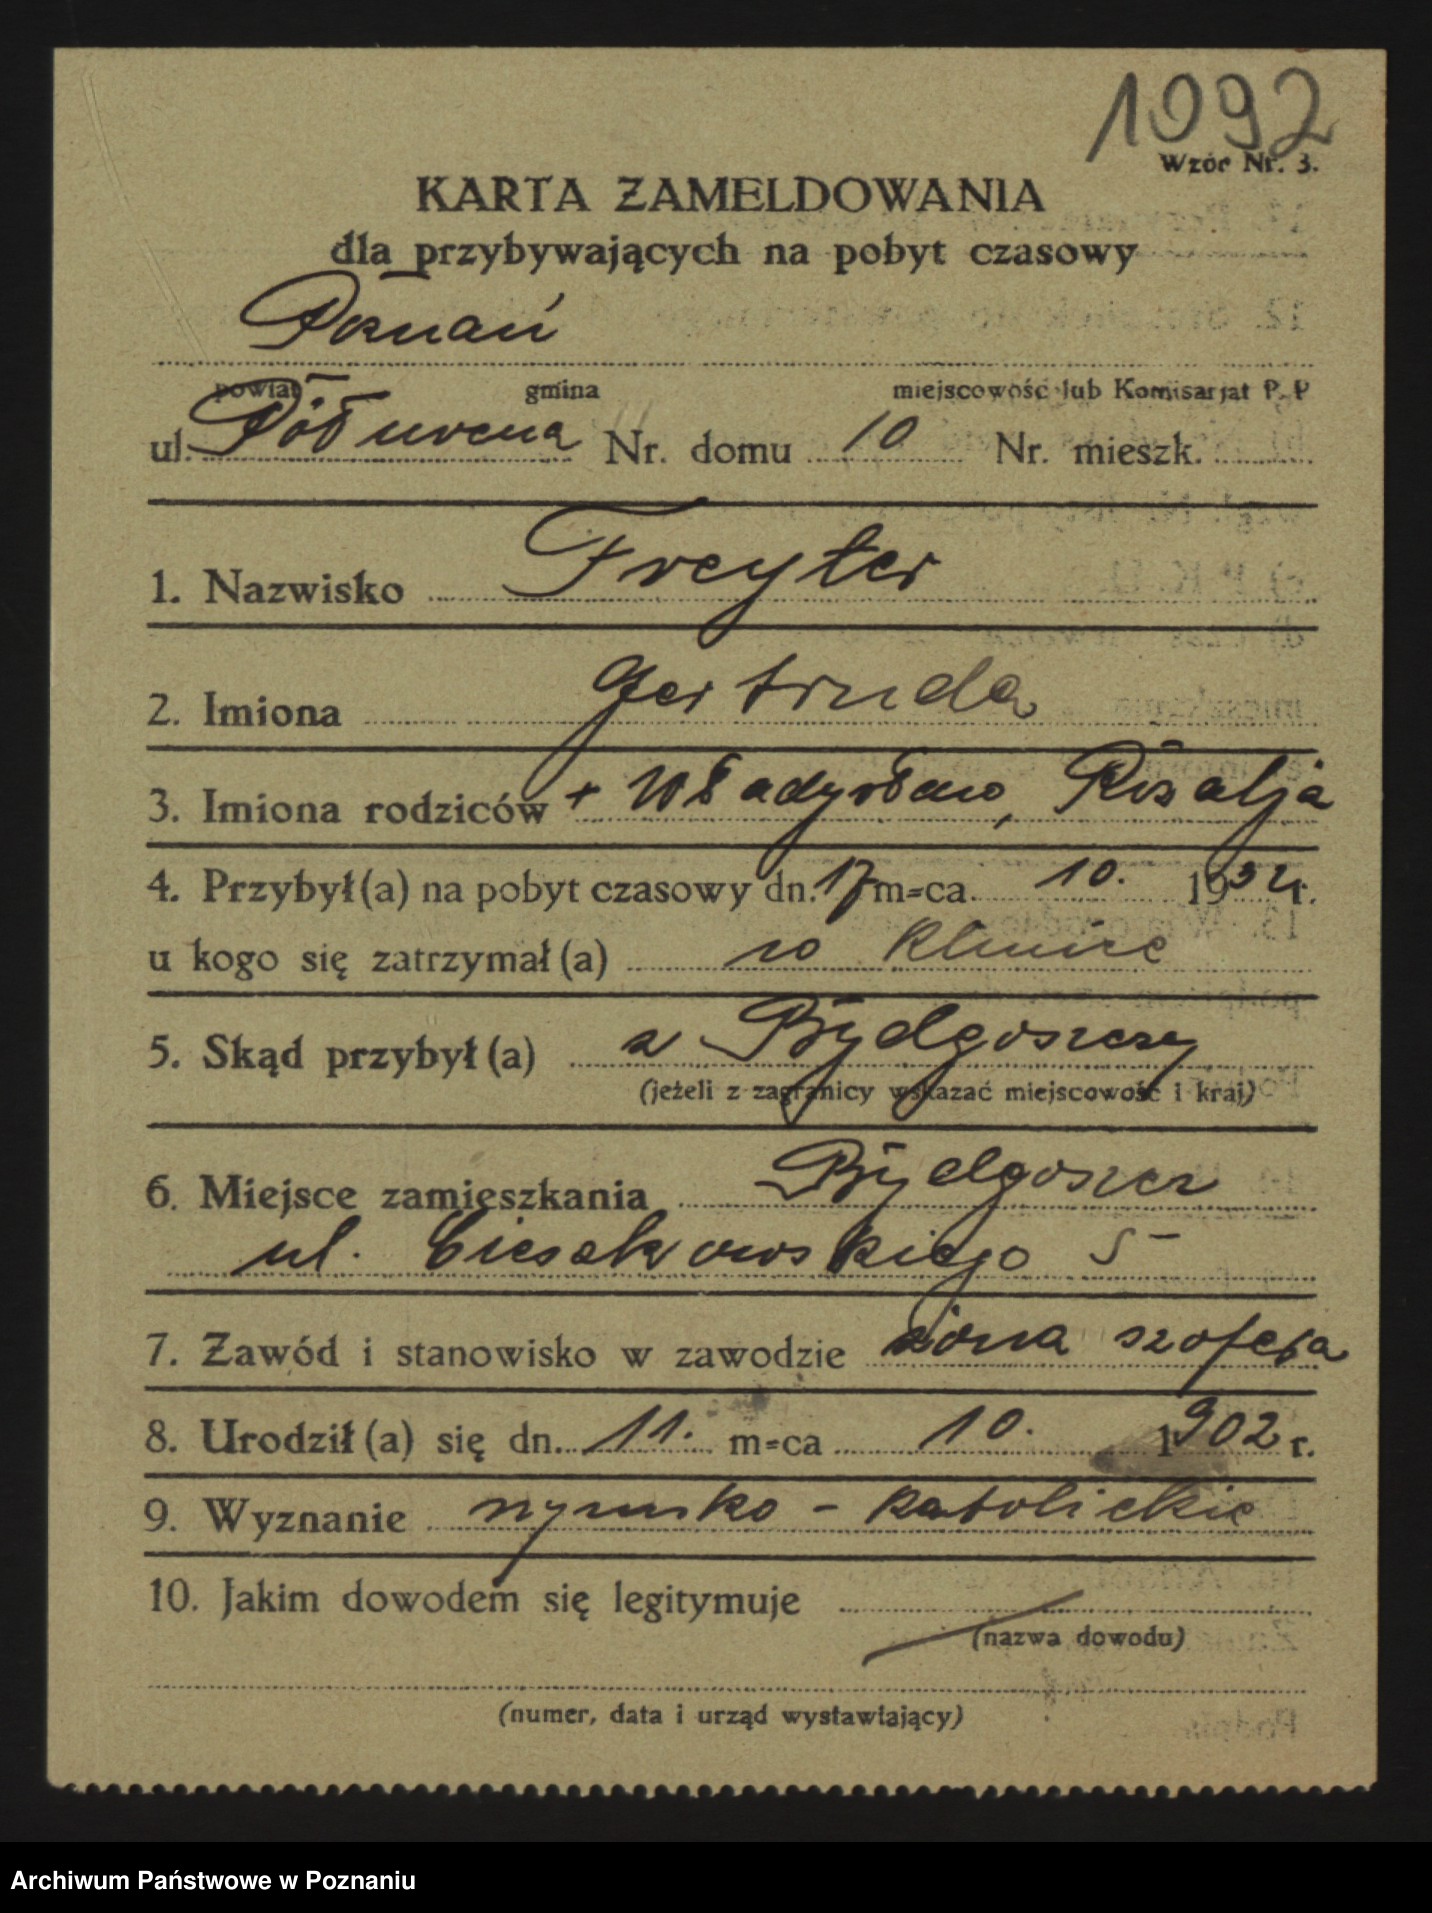 1092
Wzór Nr. 3.
KARTA ZAMELDOWANIA
dla przybywających na pobyt czasowy
Poznań
powiat gmina miejscowość lub Komisarjat P. P
ul. Półwrena Nr. domu 10 Nr. mieszk.
1. Nazwisko Freyter
2. Imiona Gertruda
3. Imiona rodziców + Władysław, Rozalja
4. Przybył(a) na pobyt czasowy dn. 17 m=ca 10. 1932 r.
u kogo się zatrzymał(a) w klinice
5. Skąd przybył(a) z Bydgoszczy
(jeżeli z zagranicy wskazać miejscowość i kraj)
6. Miejsce zamieszkania Bydgoszcz
ul. Cieszkowskiego 5
7. Zawód i stanowisko w zawodzie żona szofera
8. Urodził(a) się dn. 11. m=ca 10. 1902 r.
9. Wyznanie rzymsko - katolickie
10. Jakim dowodem się legitymuje
(nazwa dowodu)
(numer, data i urząd wystawiający)
Archiwum Państwowe w Poznaniu